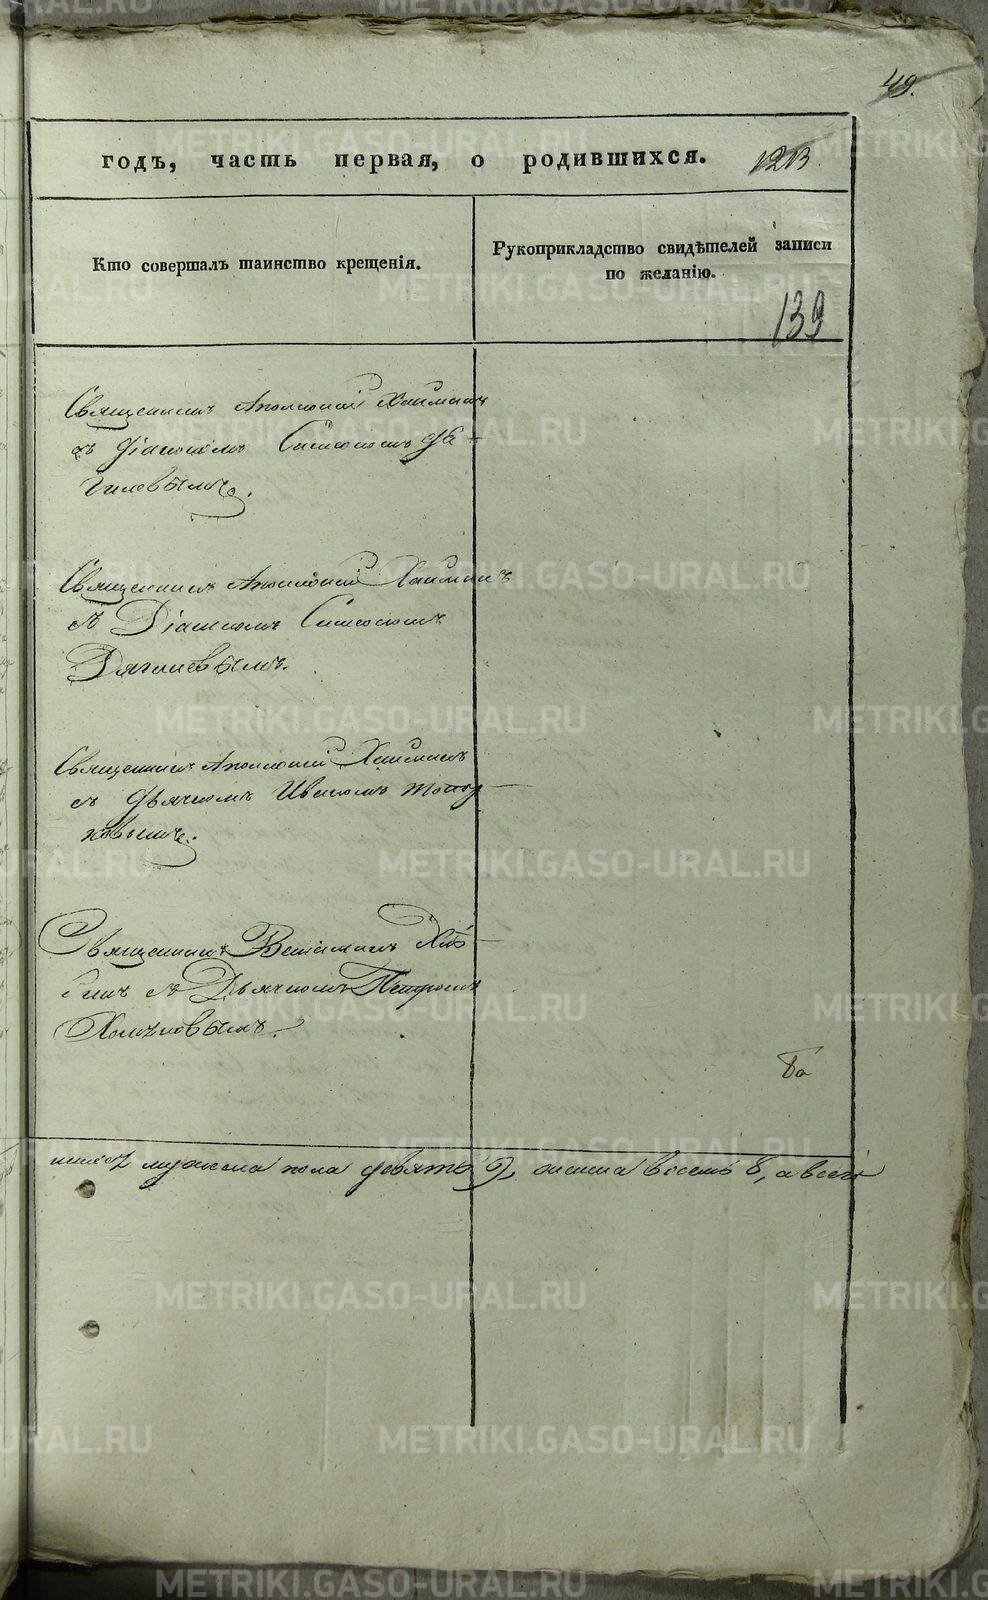 49.
годъ, часть первая, о родившихся.
Кто совершалъ таинство крещенія.
Рукоприкладство свидѣтелей записи
по желанію.
139
Священникъ Аполлоній
съ Діакономъ Симеономъ Дя
гилевымъ.
Священникъ Аполлоній
съ Діакономъ Симеономъ
Дягилевымъ.
Священникъ Аполлоній
съ Дьячкомъ Иваномъ Топор
ковымъ.
Священникъ Веніаминъ Хлѣ
бинъ съ Дьячкомъ Петромъ
мужеска пола девять 9, женска восемь 8, а всего
METRIKI.GASO-URAL.RU